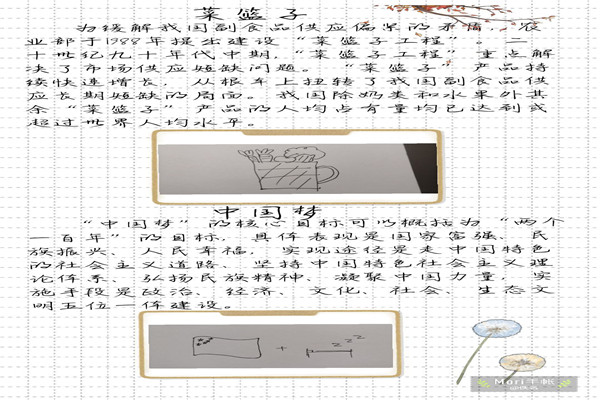 菜篮子
为缓解我国副食品供应偏紧的矛盾，农
业部于1988年提出建设“菜篮子工程”。二
十世纪九十年代中期，“菜篮子工程”重点解
决了市场供应短缺问题。“菜篮子”产品持
续快速增长，从根本上扭转了我国副食品供
应长期短缺的局面。我国除奶类和水果外其
余“菜篮子”产品的人均占有量均已达到或
超过世界人均水平。
中国梦
“中国梦”的核心目标可以概括为“两个
一百年”的目标，具体表现是国家富强、民
族振兴、人民幸福，实现途径是走中国特色
的社会主义道路、坚持中国特色社会主义理
论体系、弘扬民族精神、凝聚中国力量，实
施手段是政治、经济、文化、社会、生态文
明五位一体建设。
zzz
+
Mori手帐